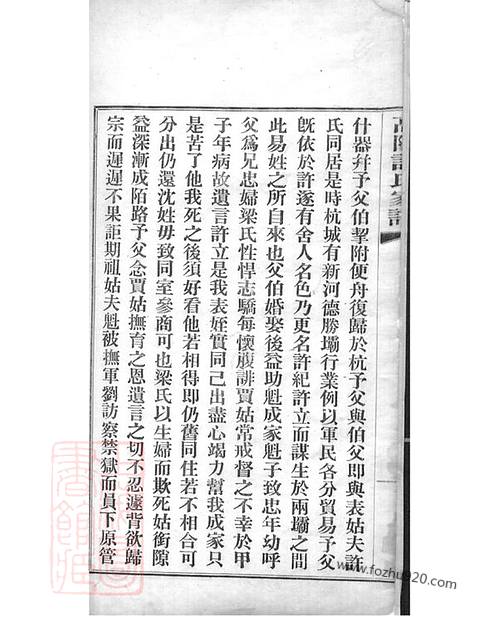 什器幷予父伯挈附便舟復歸於杭予父與伯父卽與表姑夫許
氏同居是時杭城有新河德勝壩行業例以軍民各分貿易予父
旣依於許遂有舍人名色乃更名許紀許立而謀生於兩壩之間
此易姓之所自來也父伯婚娶後益助魁成家魁子致忠年幼呼
父爲兄忠婦梁氏性悍志驕每懷腹誹賈姑常戒督之不幸於甲
子年病故遺言許立是我表姪實同己出盡心竭力幫我成家只
是苦了他我死之後須好看他若相得卽仍舊同住若不相合可
分出仍還沈姓毋致同室參商可也梁氏以生婦而欺死姑銜隙
益深漸成陌路予父念賈姑撫育之恩遺言之切不忍遽背欲歸
宗而遲遲不果詎期祖姑夫魁被撫軍劉訪察禁獄而員下原管
高陽許氏家譜
www.fozhu920.com